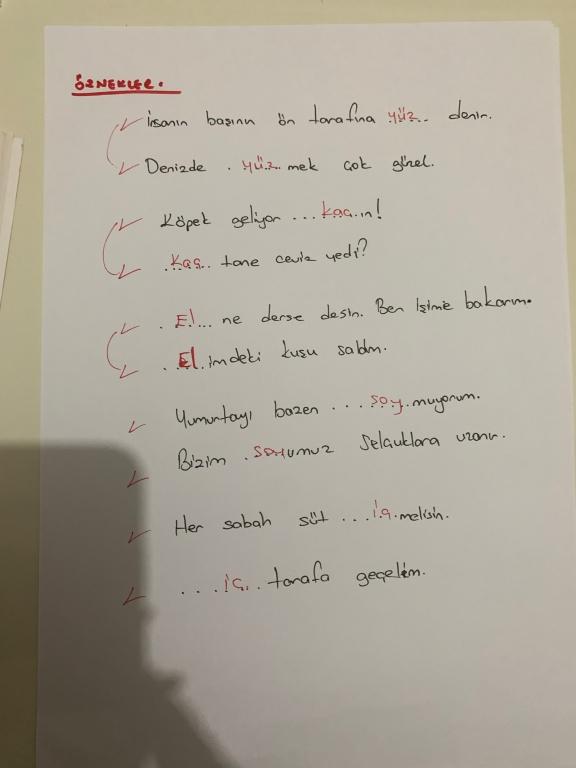 ÖRNEKLER.
İnsanın başının ön tarafına yüz.. denir.
Denizde . yüz..mek çok güzel.
Köpek geliyor ...kaç..ın!
.Kaç.. tane ceviz yedi?
. El... ne derse desin. Ben işime bakarım.
. .El.imdeki kuşu saldım.
Yumurtayı bazen ....soy.muyorum.
Bizim .soyumuz Selçuklara uzanır.
Her sabah süt ...iç.melisin.
...iç.. tarafa geçelim.